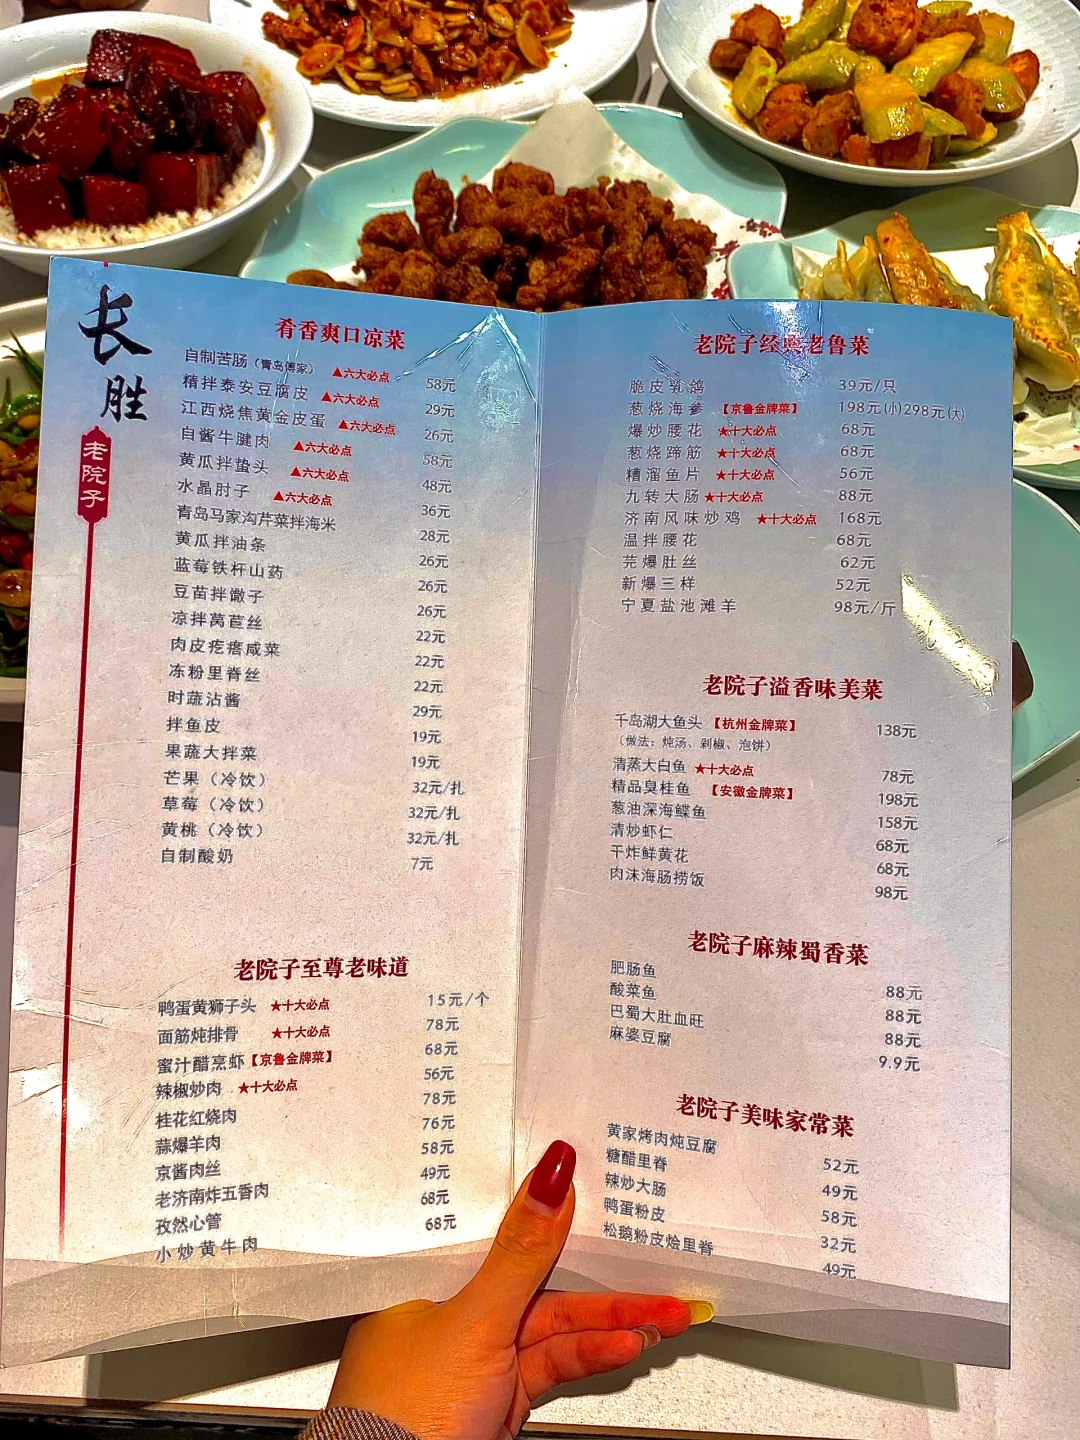 长胜
老院子
肴香爽口凉菜
自制苦肠（青岛傅家） ▲六大必点 58元
精拌泰安豆腐皮 ▲六大必点 29元
江西烧焦黄金皮蛋 ▲六大必点 26元
自酱牛腱肉 ▲六大必点 58元
黄瓜拌蛰头 ▲六大必点 48元
水晶肘子 ▲六大必点 36元
青岛马家沟芹菜拌海米 28元
黄瓜拌油条 26元
蓝莓铁杆山药 26元
豆苗拌馓子 26元
凉拌莴苣丝 22元
肉皮疙瘩咸菜 22元
冻粉里脊丝 22元
时蔬沾酱 29元
拌鱼皮 19元
果蔬大拌菜 19元
芒果（冷饮） 32元/扎
草莓（冷饮） 32元/扎
黄桃（冷饮） 32元/扎
自制酸奶 7元
老院子至尊老味道
鸭蛋黄狮子头 ★十大必点 15元/个
面筋炖排骨 ★十大必点 78元
蜜汁醋烹虾【京鲁金牌菜】 68元
辣椒炒肉 ★十大必点 56元
桂花红烧肉 78元
蒜爆羊肉 76元
京酱肉丝 58元
老济南炸五香肉 49元
孜然心管 68元
小炒黄牛肉 68元
老院子经典老鲁菜
脆皮乳鸽 39元/只
葱烧海参 【京鲁金牌菜】 198元(小)298元(大)
爆炒腰花 ★十大必点 68元
葱烧蹄筋 ★十大必点 68元
糟溜鱼片 ★十大必点 56元
九转大肠 ★十大必点 88元
济南风味炒鸡 ★十大必点 168元
温拌腰花 68元
芫爆肚丝 62元
新爆三样 52元
宁夏盐池滩羊 98元/斤
老院子溢香味美菜
千岛湖大鱼头 【杭州金牌菜】 138元
（做法：炖汤、剁椒、泡饼）
清蒸大白鱼 ★十大必点 78元
精品臭桂鱼 【安徽金牌菜】 198元
葱油深海鲽鱼 158元
清炒虾仁 68元
干炸鲜黄花 68元
肉沫海肠捞饭 98元
老院子麻辣蜀香菜
肥肠鱼 88元
酸菜鱼 88元
巴蜀大肚血旺 88元
麻婆豆腐 9.9元
老院子美味家常菜
黄家烤肉炖豆腐 52元
糖醋里脊 49元
辣炒大肠 58元
鸭蛋粉皮 32元
松鹅粉皮烩里脊 49元